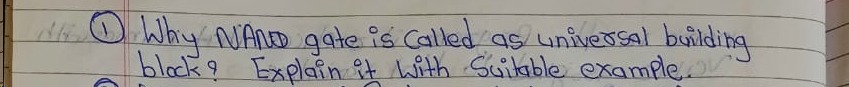 ① Why NAND gate is called as universal building
block? Explain it with Suitable example.